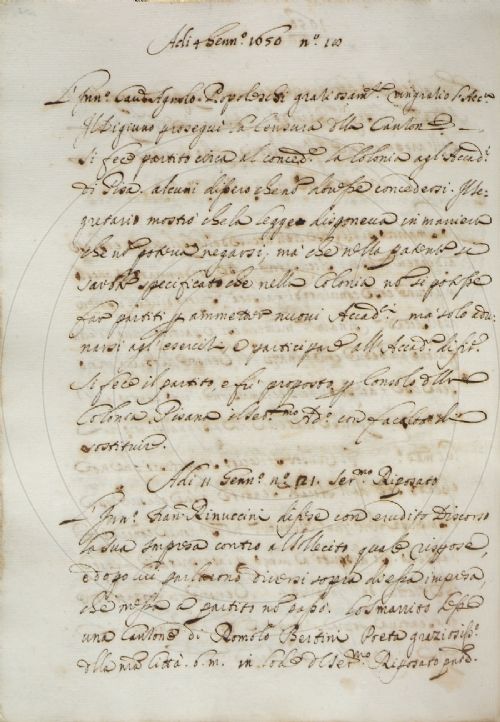 Adi 4 Genn.º 1650 n.º 18
L'Inn.º Cau. Agnolo Popoleschi graziosam.te ringraziò l'Acc.a
Il Bigiuno proseguì la Censura della Canzon.e
Si fece partito circa al conced.e la Colonia agl'Accad.i
di Pisa. alcuni dissero che no douesse concedersi. Il se
gretario mostrò che la legge disponeua in maniera
che no poteua negarsi. ma che nella patente si
sarebbe specificato che nella Colonia no si potesse
fare partiti p ammettere nuoui Accad.i ma solo adu
narsi agl'esercizi, e participare all'Accad.a di Fir.e
Si fece il partito, e fù proposto p Consolo della
Colonia Pisana il Ser.mo Ad.o con facoltà di
sostituire.
Adi 11 Genn.º n.º 21. Ser.mo Riposato
L'Inn.º Fran.º Rinuccini difese con erudito discorso
la sua impresa contro all'Illecito quale rispose,
e dopo cui parlarono diuersi sopra di essa impresa,
che messa a partito no passò. Lo Smarrito lesse
una Canzone di Romolo Bertini Poeta graziosiss.º
della n.ra Città. b.m. in lode del Ser.mo Riposato pnte.